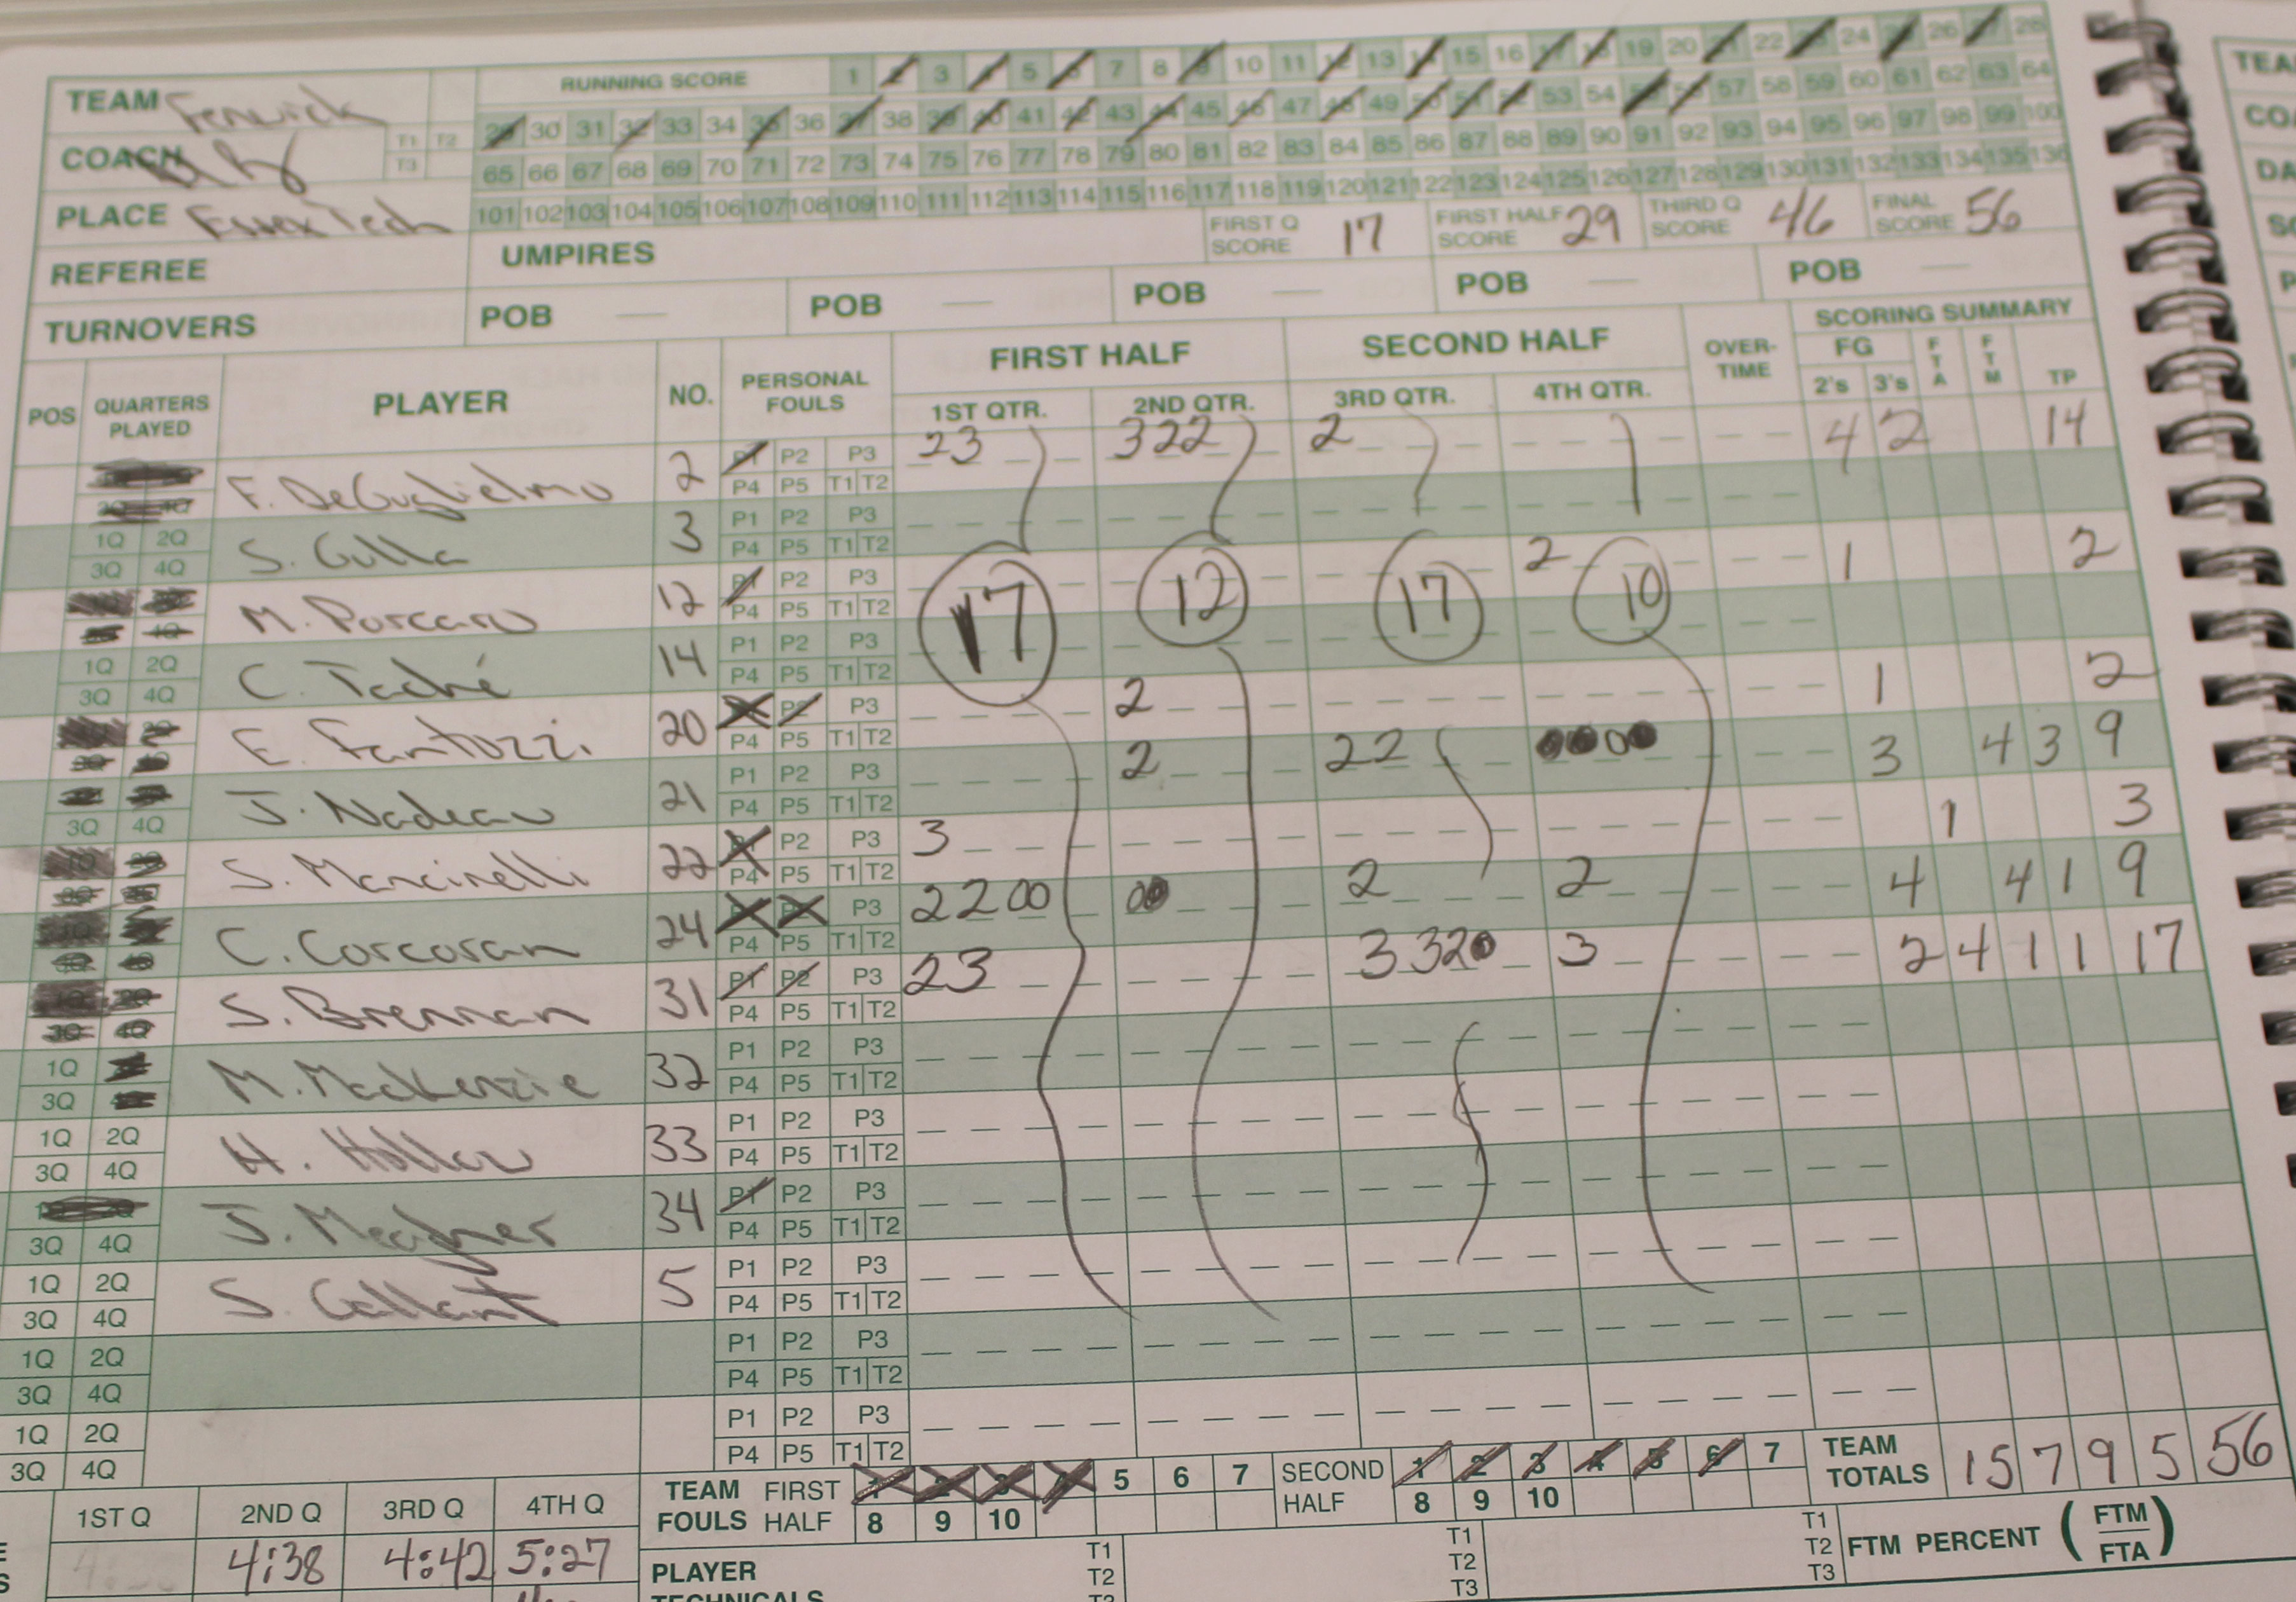 TEAM Fenwick RUNNING SCORE 1 2 3 4 5 6 7 8 9 10 11 12 13 14 15 16 17 18 19 20 21 22 23 24 25 26 27 28
29 30 31 32 33 34 35 36 37 38 39 40 41 42 43 44 45 46 47 48 49 50 51 52 53 54 55 56 57 58 59 60 61 62 63 64
COACH T1 T2 T3
65 66 67 68 69 70 71 72 73 74 75 76 77 78 79 80 81 82 83 84 85 86 87 88 89 90 91 92 93 94 95 96 97 98 99 100
PLACE Essex Tech
101 102 103 104 105 106 107 108 109 110 111 112 113 114 115 116 117 118 119 120 121 122 123 124 125 126 127 128 129 130 131 132 133 134 135 136
REFEREE UMPIRES FIRST Q SCORE 17 FIRST HALF SCORE 29 THIRD Q SCORE 46 FINAL SCORE 56
TURNOVERS POB — POB — POB — POB — POB —
POS QUARTERS PLAYED PLAYER NO. PERSONAL FOULS FIRST HALF SECOND HALF OVER-TIME SCORING SUMMARY
1ST QTR. 2ND QTR. 3RD QTR. 4TH QTR. FG 2's 3's FTA FTM TP
F. DeGuglielmo 2 P1 P2 P3 P4 P5 T1 T2 23 322 2 4 2 14
1Q 2Q 3Q 4Q S. Gulla 3 P1 P2 P3 P4 P5 T1 T2
M. Porcaro 12 P1 P2 P3 P4 P5 T1 T2 2 1 2
17 12 17 10
1Q 2Q 3Q 4Q C. Taché 14 P1 P2 P3 P4 P5 T1 T2
E. Fantozzi 20 P2 P3 P4 P5 T1 T2 2 1 2
3Q 4Q J. Nadeau 21 P1 P2 P3 P4 P5 T1 T2 2 22 0000 3 4 3 9
S. Mancinelli 22 P2 P3 P4 P5 T1 T2 3 1 3
C. Corcoran 24 P3 P4 P5 T1 T2 2200 00 2 2 4 4 1 9
S. Brennan 31 P1 P2 P3 P4 P5 T1 T2 23 3320 3 2 4 1 1 17
1Q 3Q M. MacKenzie 32 P1 P2 P3 P4 P5 T1 T2
1Q 2Q 3Q 4Q H. 33 P1 P2 P3 P4 P5 T1 T2
3Q 4Q J. Meagher 34 P1 P2 P3 P4 P5 T1 T2
1Q 2Q 3Q 4Q S. Gallant 5 P1 P2 P3 P4 P5 T1 T2
1Q 2Q 3Q 4Q P1 P2 P3 P4 P5 T1 T2
1Q 2Q 3Q 4Q P1 P2 P3 P4 P5 T1 T2
TEAM FOULS FIRST HALF 1 2 3 4 5 6 7 8 9 10 SECOND HALF 1 2 3 4 5 6 7 8 9 10 TEAM TOTALS 15 7 9 5 56
1ST Q 2ND Q 3RD Q 4TH Q
4:38 4:42 5:27
PLAYER TECHNICALS T1 T2 T1 T2 T3 T1 T2 T3 FTM PERCENT (FTM FTA)
TEA
CO
DA